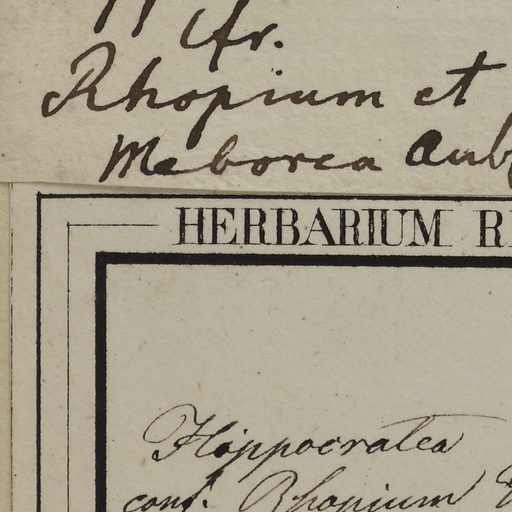 cfr.
Rhopium et
Meborea Aubl
HERBARIUM R
Hippocratea
conf. Rhopium